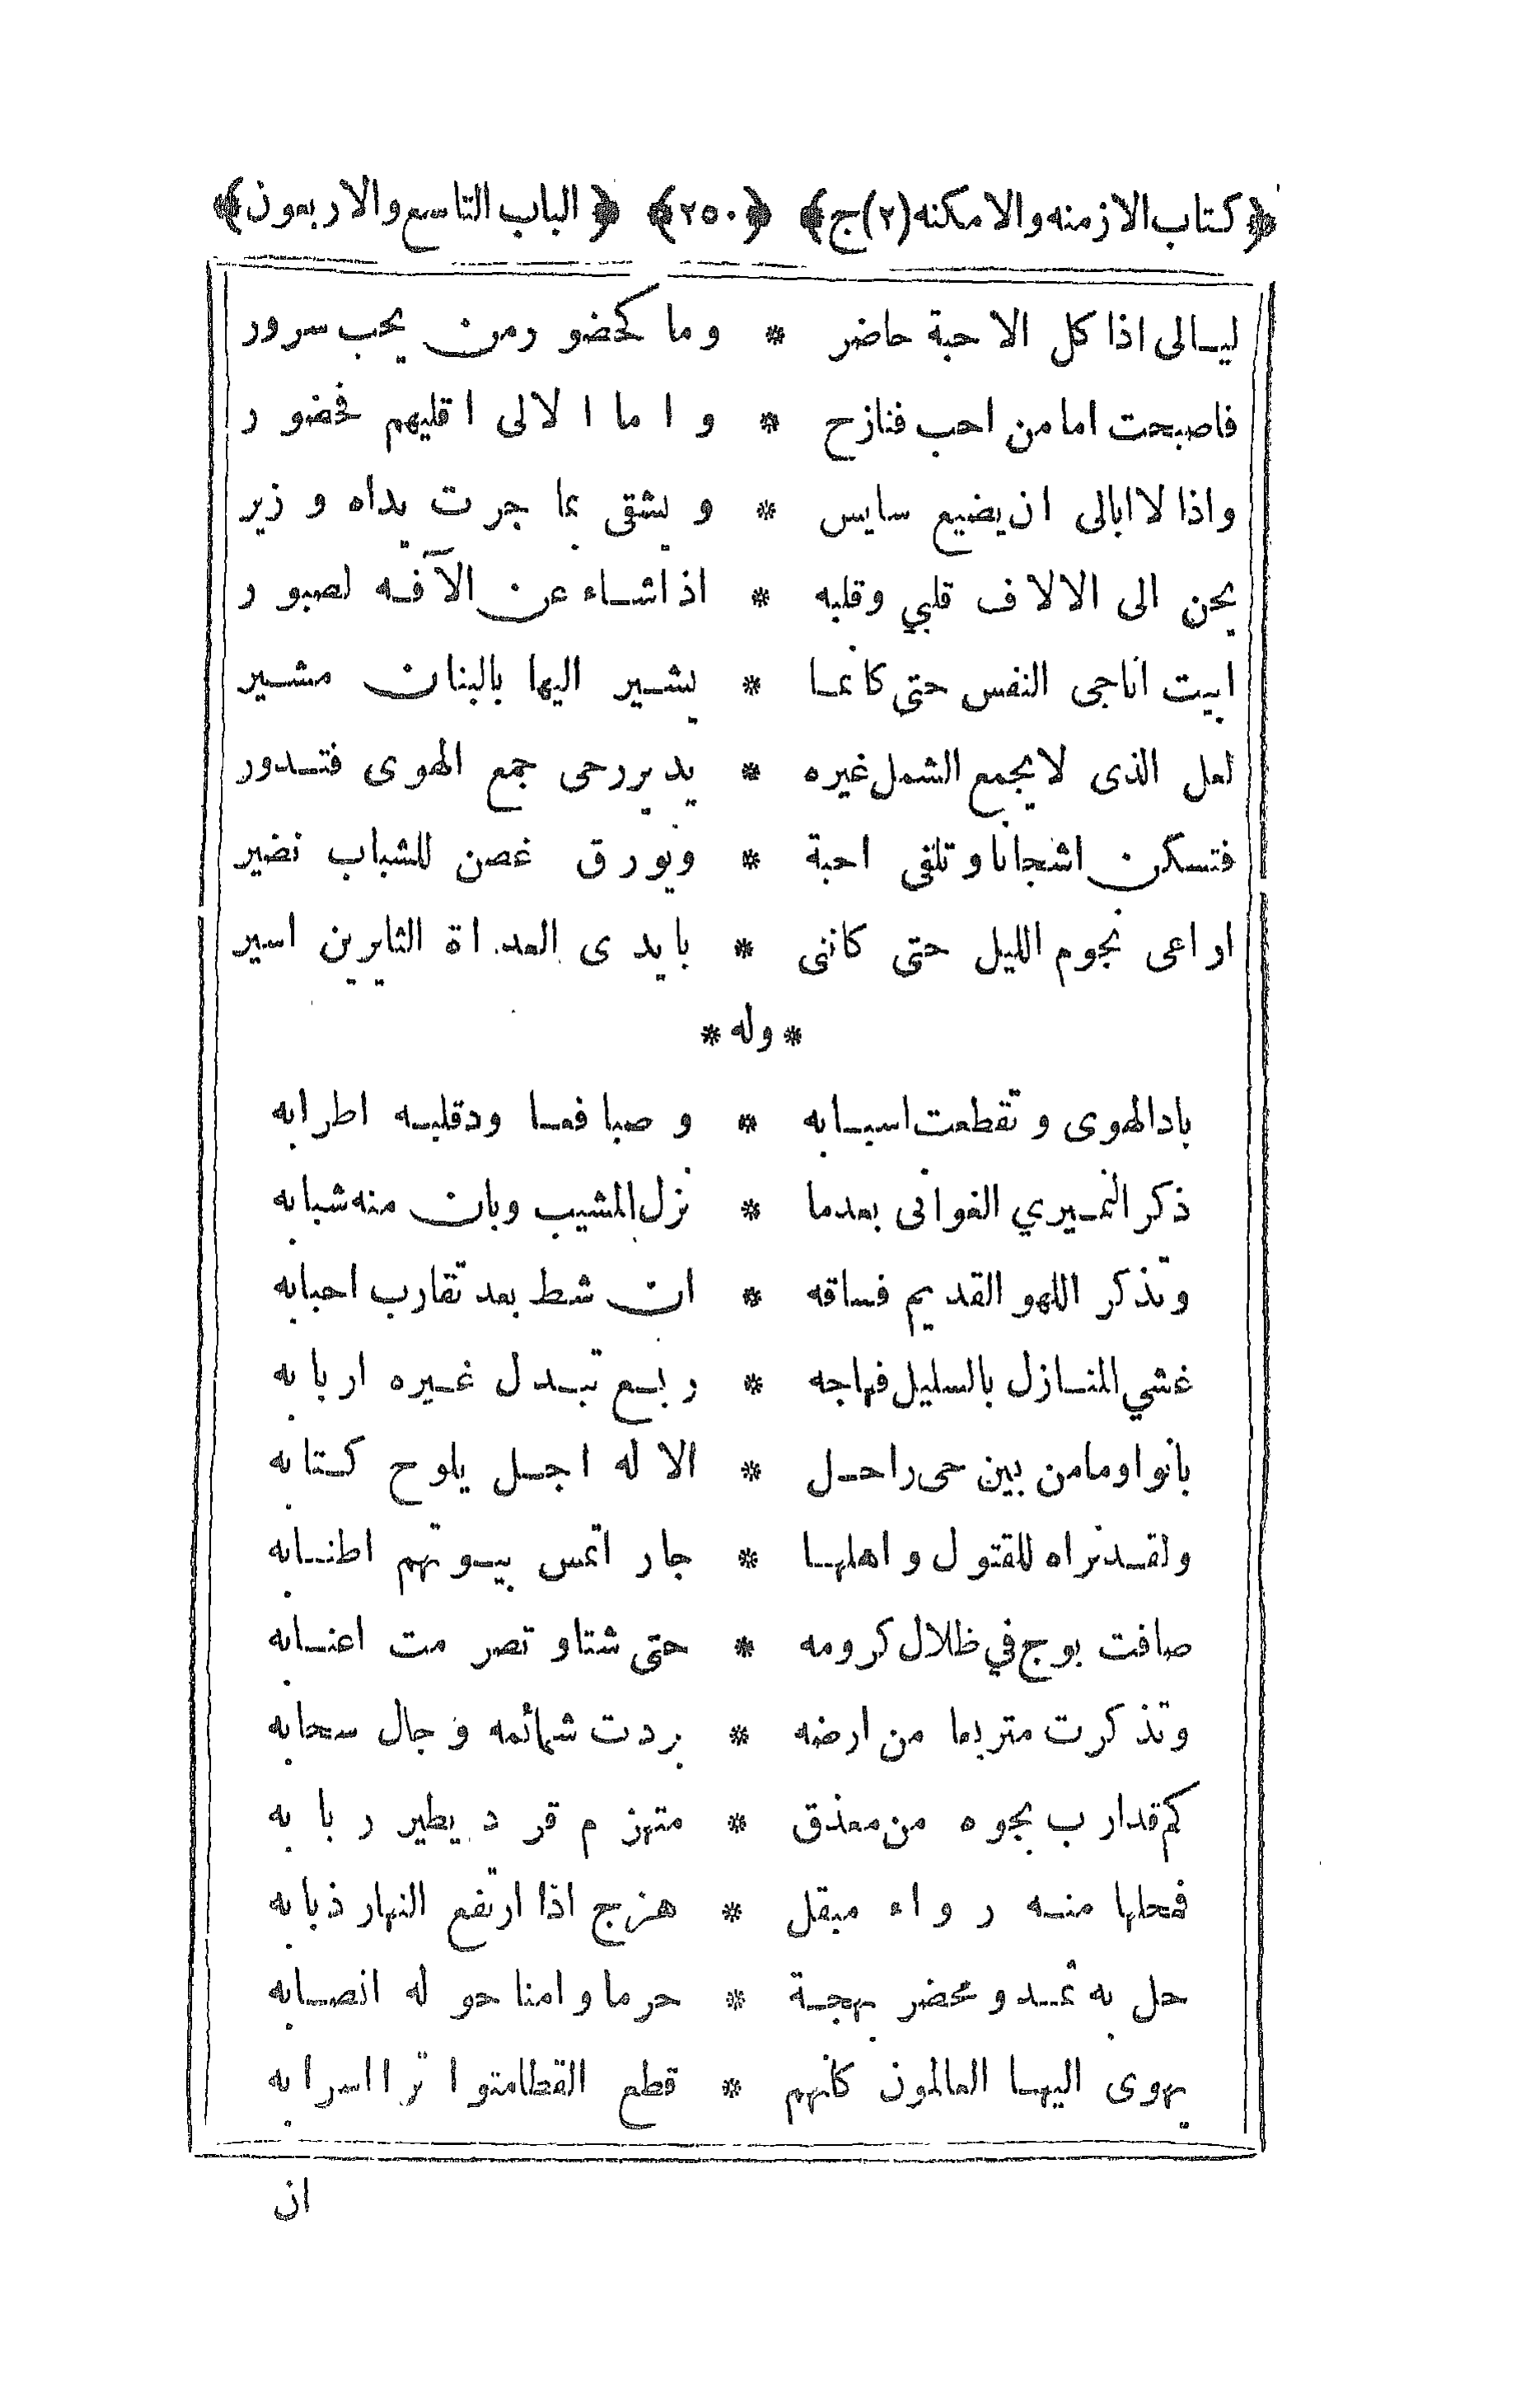 ﴿كتاب الازمنه والامكنه (٢) ج﴾ ﴿٢٥٠﴾ ﴿الباب التاسع والاربعون﴾
ليالى اذا كل الاحبة حاضر * وما كحضور من يحب سرور
فاصبحت اما من احب فنازح * واما الالى اقليهم فحضور
واذا لا ابالى ان يضيع سايس * ويشقى بما جرت يداه وزير
يحن الى الالاف قلبي وقلبه * اذا شاء عن الآفه لصبور
ابيت اناجى النفس حتى كانما * يشير اليها بالبنان مشير
لعل الذى لا يجمع الشمل غيره * يدير رحى جمع الهوى فتدور
فتسكن اشجانا وتلفى احبة * ويورق غصن للشباب نضير
اراعى نجوم الليل حتى كاننى * بايدى العداة الثايرين اسير
* وله *
باد الهوى وتقطعت اسبابه * وصبا فما ودقلبه اطرابه
ذكر النميري الغوانى بعدما * نزل المشيب وبان منه شبابه
وتذكر اللهو القديم فساقه * ان شط بعد تقارب احبابه
غشي المنازل بالسليل فهاجه * ربع تبدل غيره اربابه
بانوا وما من بين حى راحل * الا له اجل يلوح كتابه
ولقد نراه للقتول واهلها * جارا تمس بيوتهم اطنابه
صافت بوج في ظلال كرومه * حتى شتا وتصرمت اعنابه
وتذكرت متربعا من ارضه * بردت شمائمه وجال سحابه
كم قدارب بجوه من معذق * متهزم قرد يطير ربابه
فمحلها منه رواء مبقل * هزج اذا ارتفع النهار ذبابه
حل به ثمد ومحضر بهجة * حرما وامنا حوله انصابه
يهوى اليها العالمون كانهم * قطع القطا متواترا اسرابه
ان